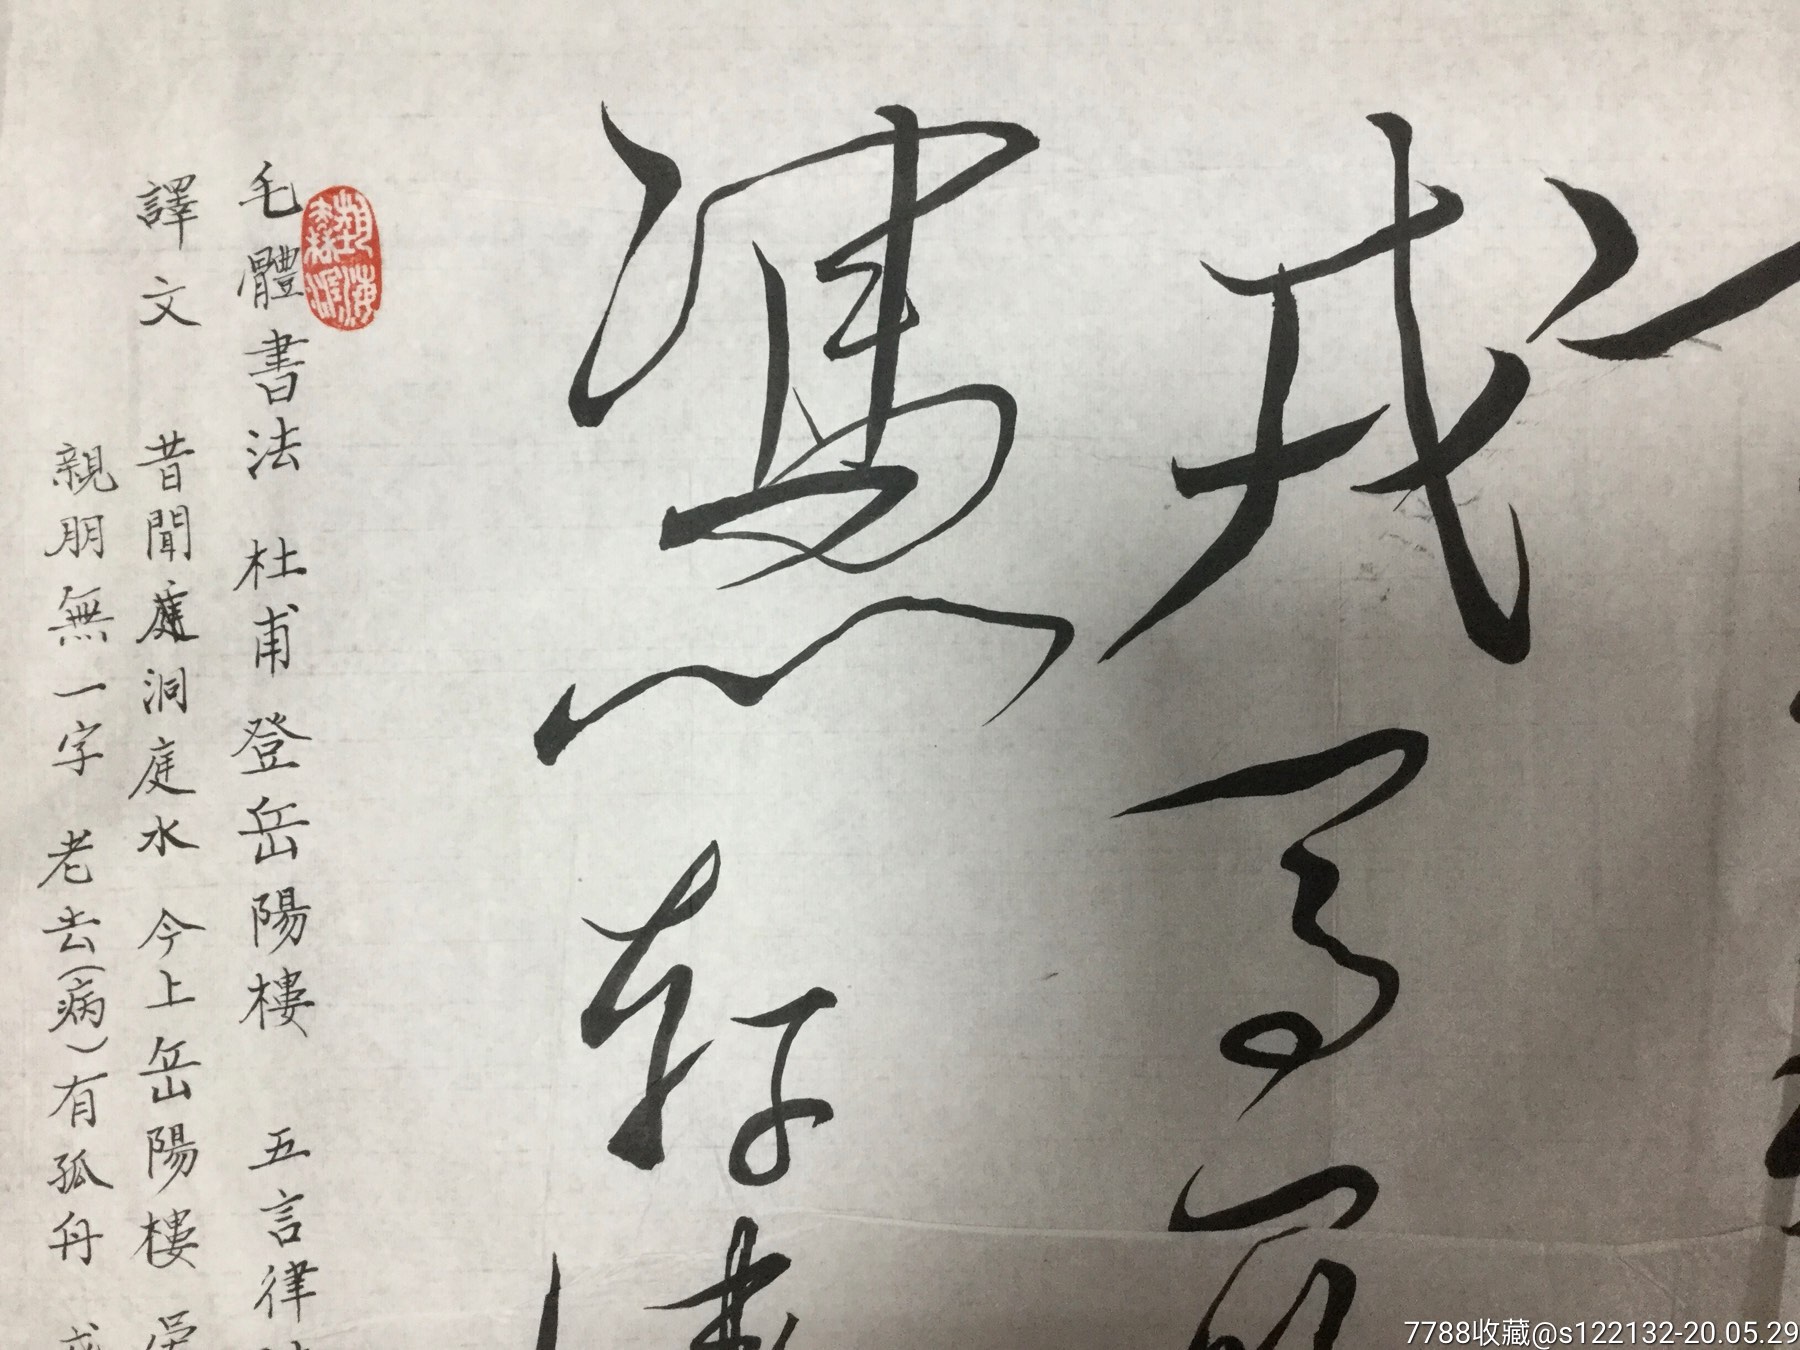 戎馬關
憑軒涕
毛體書法 杜甫 登岳陽樓 五言律
譯文 昔聞洞庭水 今上岳陽樓 吳
親朋無一字 老去(病)有孤舟 戎
7788收藏@s122132-20.05.29